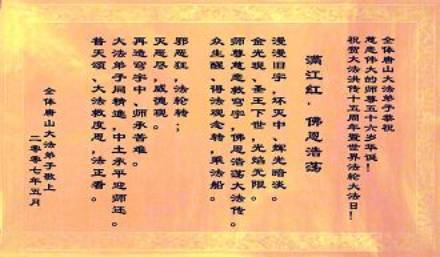 全体唐山大法弟子恭祝
慈悲伟大的师尊五十六岁华诞！
祝贺大法洪传十五周年暨世界法轮大法日！
满江红·佛恩浩荡
漫漫旧宇，坏灭中，辉光暗淡。
金光现、圣王下世，光焰无限。
师尊慈悲救穹宇，佛恩浩荡大法传。
众生醒、得法观念转，乘法船。
邪恶狂，法轮转；
灭恶尽，威德现。
再造穹宇中、师承苦难。
大法弟子同精进，中土承平迎师还。
普天颂、大法救度恩，法正看。
全体唐山大法弟子敬上
二零零七年五月